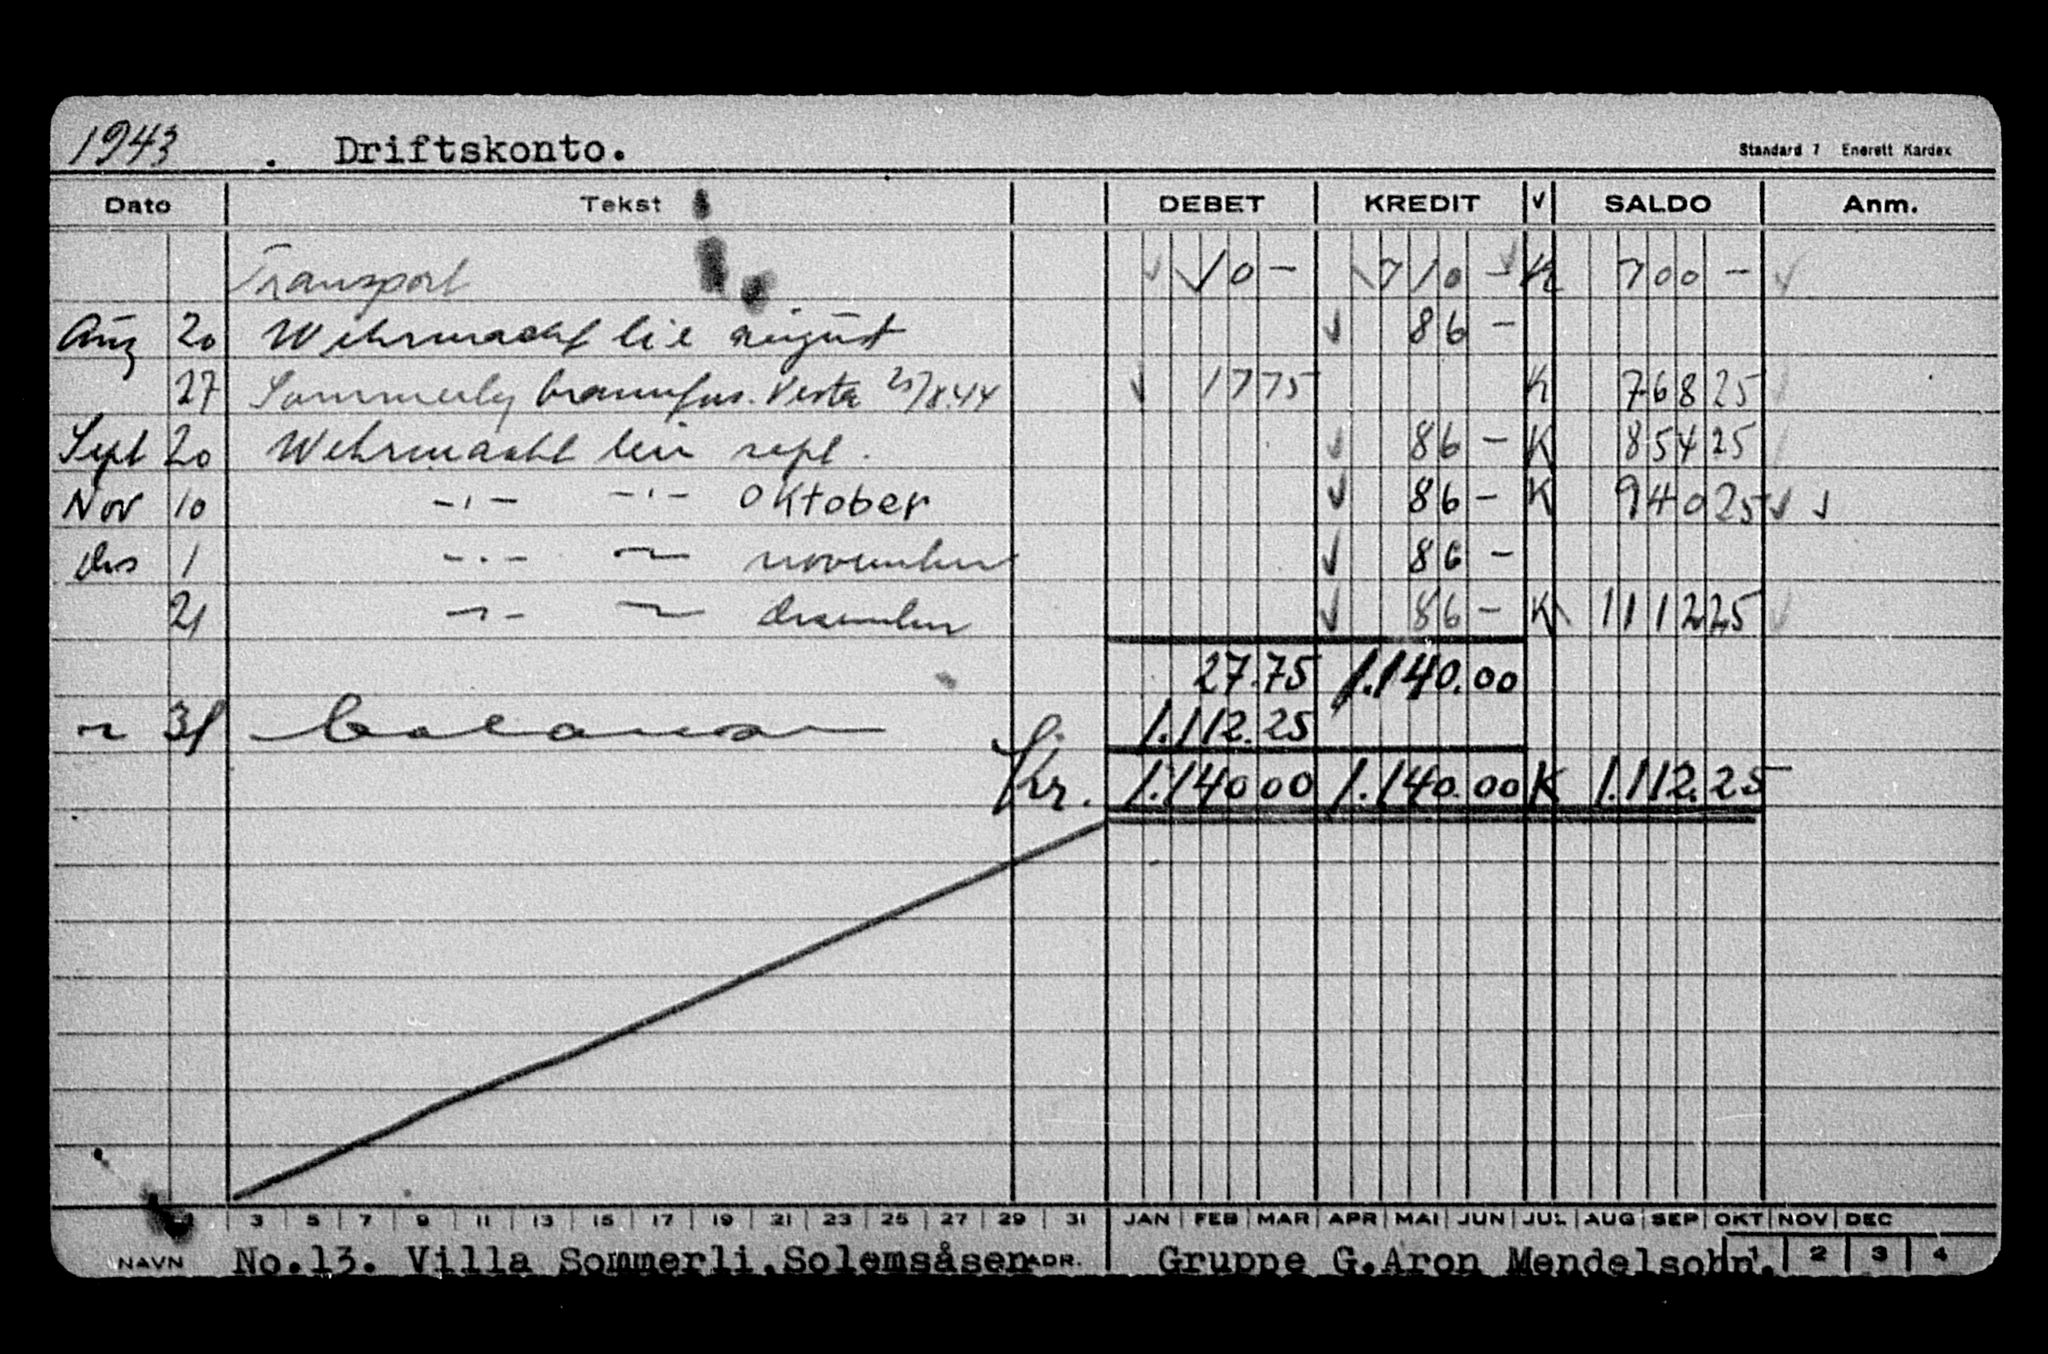 1943 . Driftskonto.
Standard 7 Enerett Kardex
Dato Tekst DEBET KREDIT √ SALDO Anm.
Transport 10 - 710 - K 700 -
Aug 20 Wehrmacht leie august 86 -
27 Sommerly brannfors. Vesta 25/8.44 17 75 K 768 25
Sept 20 Wehrmacht leie sept. 86 - K 854 25
Nov 10 -"- -"- Oktober 86 - K 940 25
des 1 -"- -"- november 86 -
21 -"- -"- desember 86 - K 1112 25
27.75 1.140.00
" 31 balanse 1.112.25
Kr. 1.140 00 1.140.00 K 1.112.25
3 5 7 9 11 13 15 17 19 21 23 25 27 29 31 JAN FEB MAR APR MAI JUN JUL AUG SEP OKT NOV DEC
NAVN No.13. Villa Sommerli, Solemsåsen ADR. Gruppe G. Aron Mendelsohn. 1 2 3 4